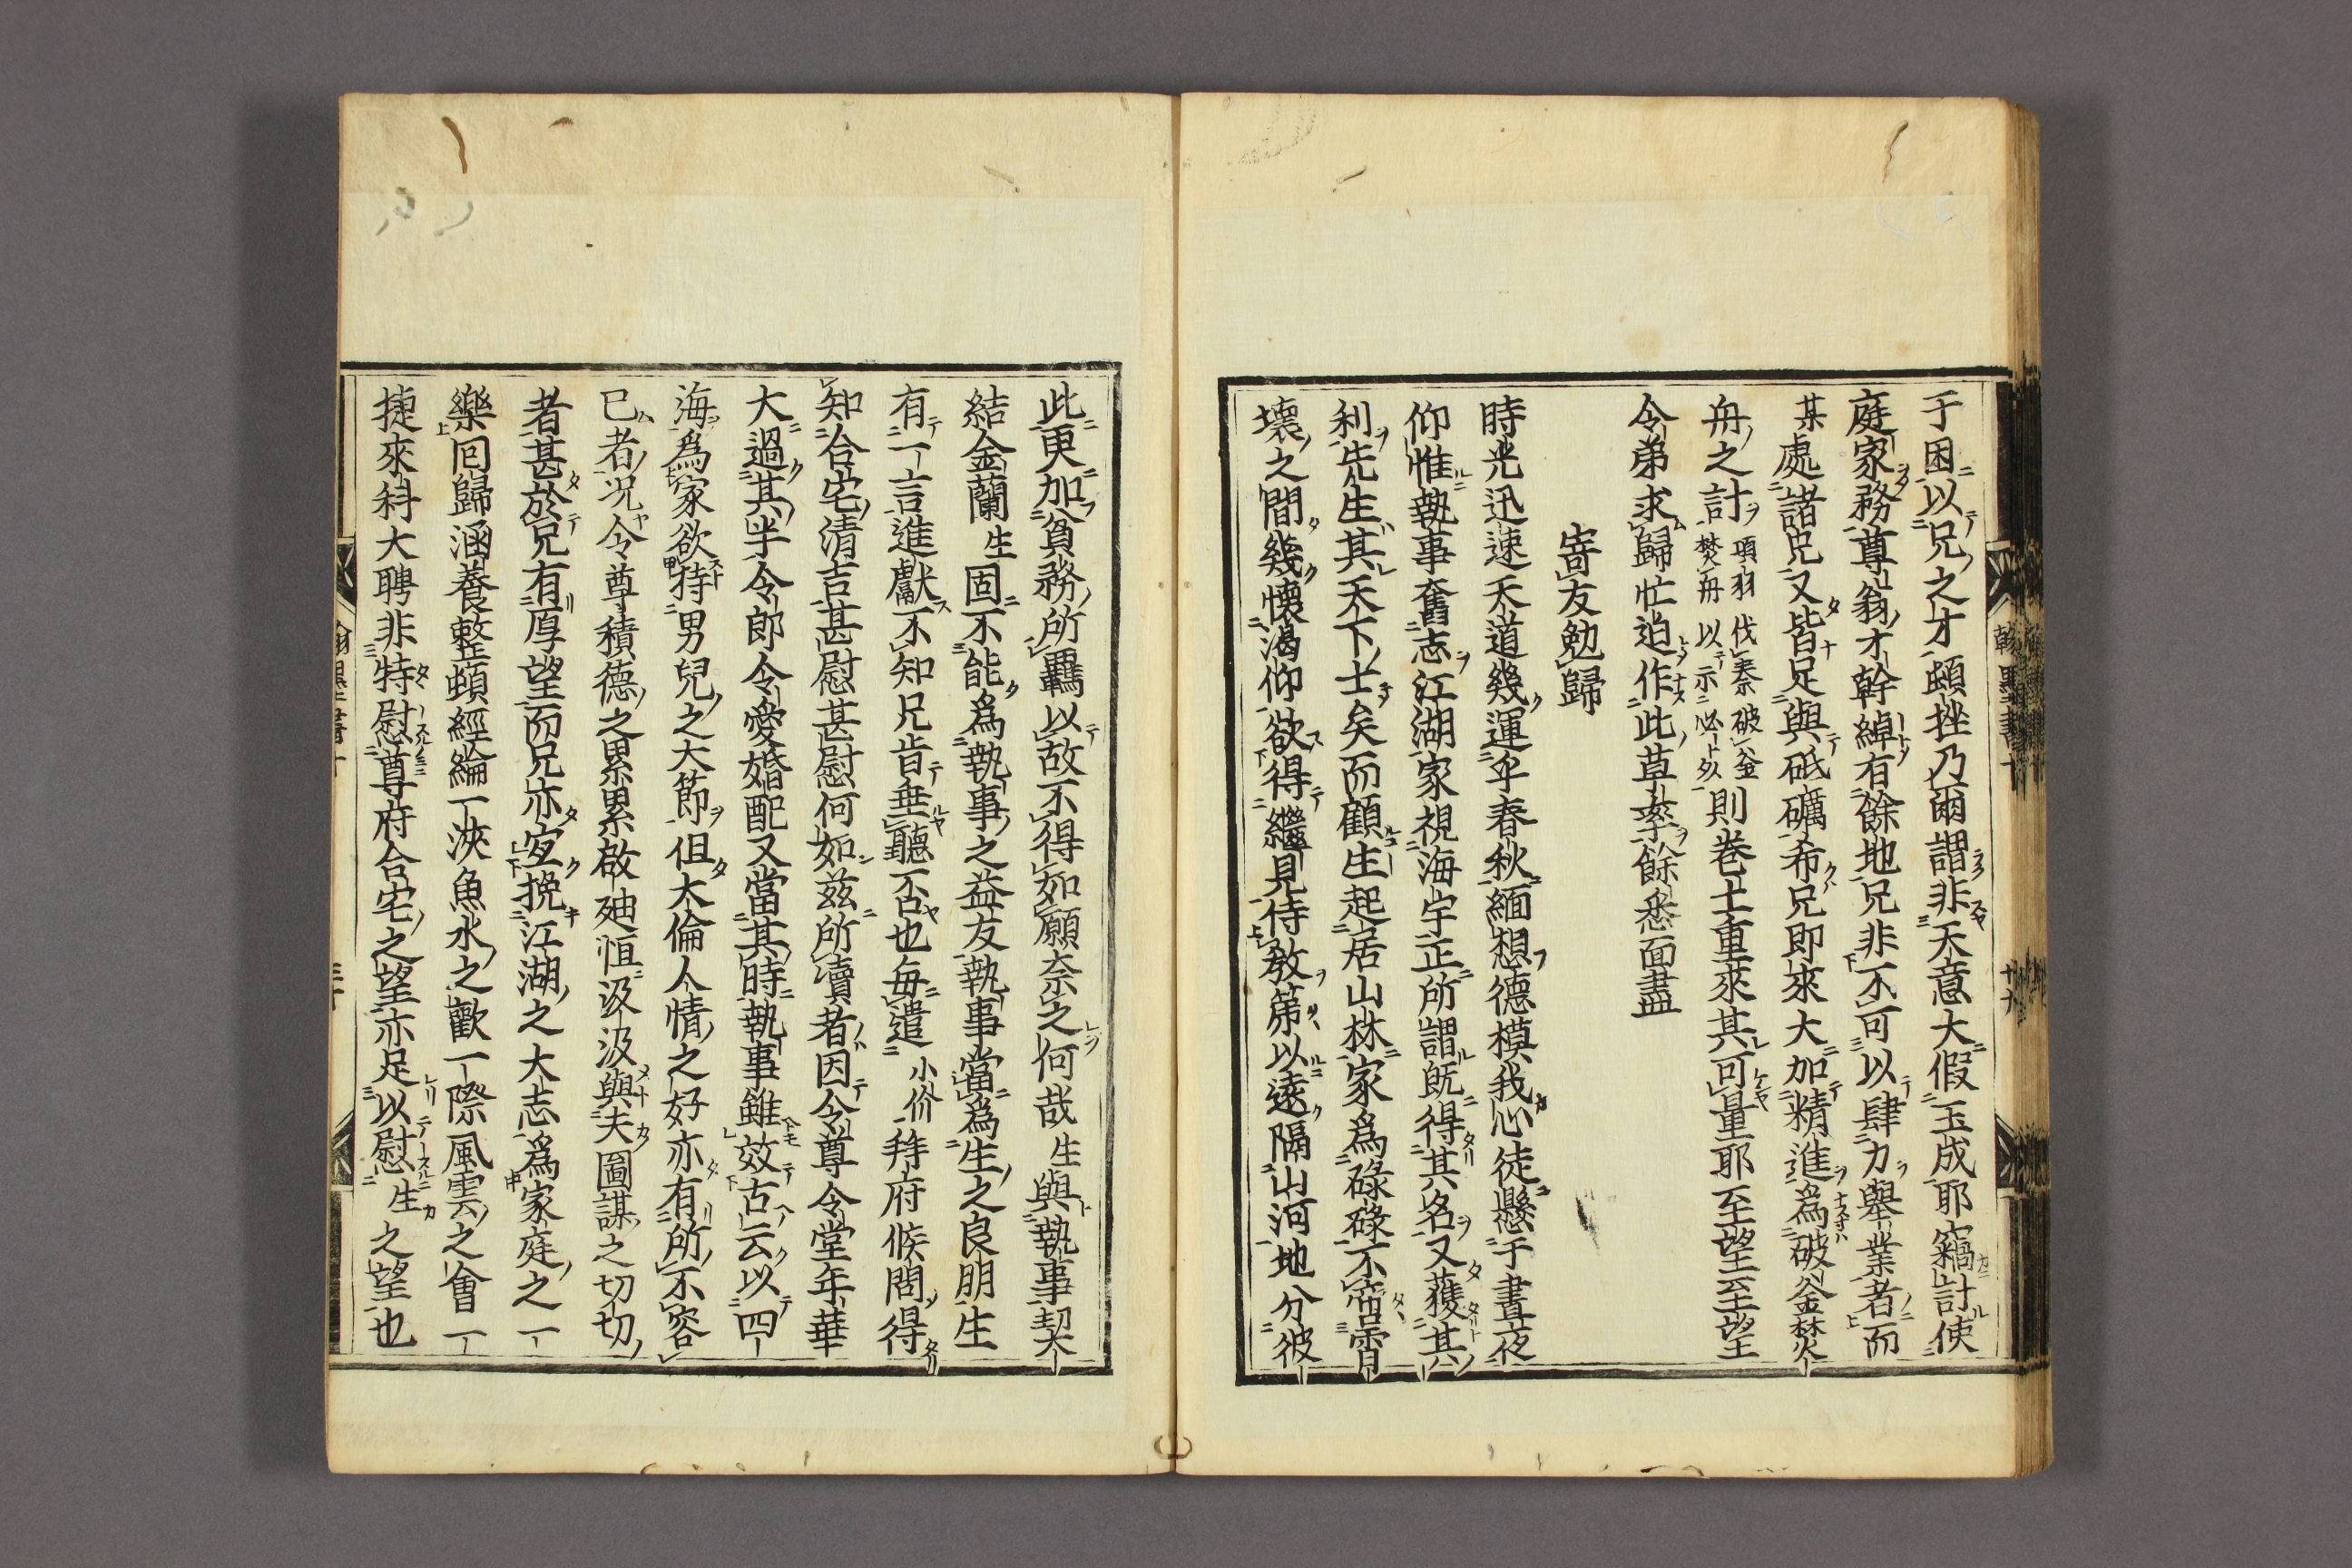 于困以兄之才頗挫乃爾謂非天意大假玉成耶竊計使
庭家務尊翁才幹綽有餘地兄非不可以肆力舉業者而
某處諸兄又皆足與砥礪希兄即來大加精進爲破釜焚
舟之計項羽伐秦破釜焚舟以示必死則巻土重來其可量耶至望至望
令弟求歸忙迫作此草率餘悉面盡
寄友勉歸
時光迅速天道幾運乎春秋緬想德模我心徒懸于晝夜
仰惟執事奮志江湖家視海宇正所謂既得其名又獲其
利先生其天下士矣而顧生起居山林家爲碌碌不啻霄
壤之間幾懷渴仰欲得繼見侍教第以遠隔山河地分彼
此更加貧務所羈以故不得如願奈之何哉生與執事契
結金蘭生固不能爲執事之益友執事當爲生之良朋生
有一言進獻不知兄肯垂聽否也每遣小价拜府候問得
知合宅清吉甚慰甚慰何如茲所瀆者因令尊令堂年華
大過其半令郎令愛婚配又當其時執事雖效古云以四
海爲家欲特男兒之大節但大倫人情之好亦有所不容
已者况令尊積德之累累啟迪恒汲汲與夫圖謀之切切
者甚於兄有厚望而兄亦宜挽江湖之大志爲家庭之一
樂囘歸涵養整頓經綸一浹魚水之歡一際風雲之會一
捷來科大聘非特慰尊府合宅之望亦足以慰生之望也
翰墨書十
十九